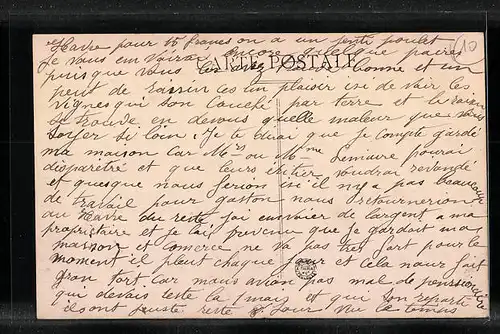 Havre pour 15 francs on a un petit poulet
je vous en voirai encore quelque paires
CARTE POSTALE
puisque vous les avez bonne et un
peut de raisin ces un plaisir isi de voir les
vignes qui son par terre et le raisin
se trouve en desous quelle maleur que vous
soiyer si loin. Je te dirai que je compte gardé
ma maison car Mrs ou Mme Lemaire pourai
disparétre et que leurs voudrai revendé
et quesque nous ferion isi il ny a pas beaucoup
de travail pour gaston nous retournerion
au Havre du reste jai envoier de largent a ma
propriétaire et je lai prevenu que je gardait mas
maison et comerce ne va pas tres fort pour le
moment il pleut chaque jour et cela nous fait
gran tort car nous avion pas mal de pensionaire
qui devais reste la 1 mois et qui son reparti
ils ont juste reste jour vu le temps
10